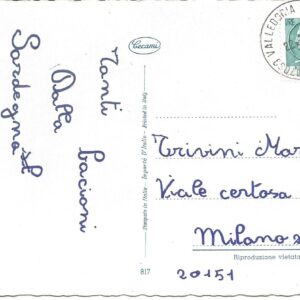 Tanti
bacioni
Dalla
Sardegna
Cecami
Stampato in Italia - Imporié D'Italie - Printed in Italy
817
VALLEDORIA
Trivini Mar
Viale certosa
Milano
20151
Riproduzione vietata